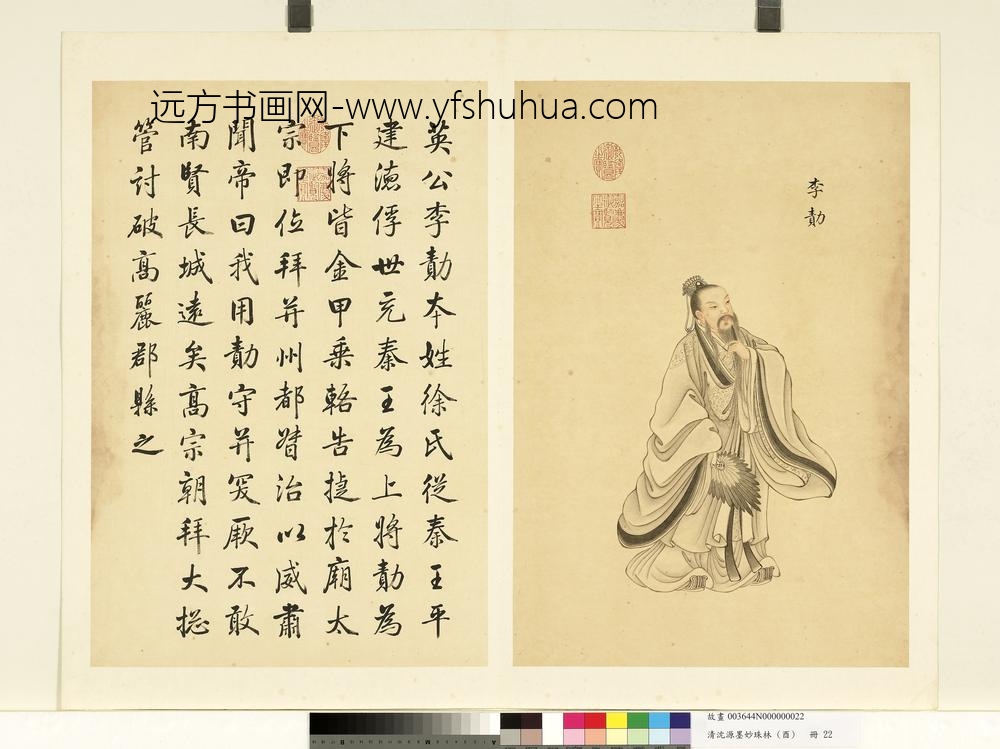 远方书画网-www.yfshuhua.com
李勣
英公李勣本姓徐氏從秦王平
建德俘世充秦王為上將勣為
下將皆金甲乘輅告捷於廟太
宗即位拜并州都督治以威肅
聞帝曰我用勣守并突厥不敢
南賢長城遠矣高宗朝拜大捴
管討破高麗郡縣之
故畫 003644N000000022
清沈源墨妙珠林（酉） 冊 22